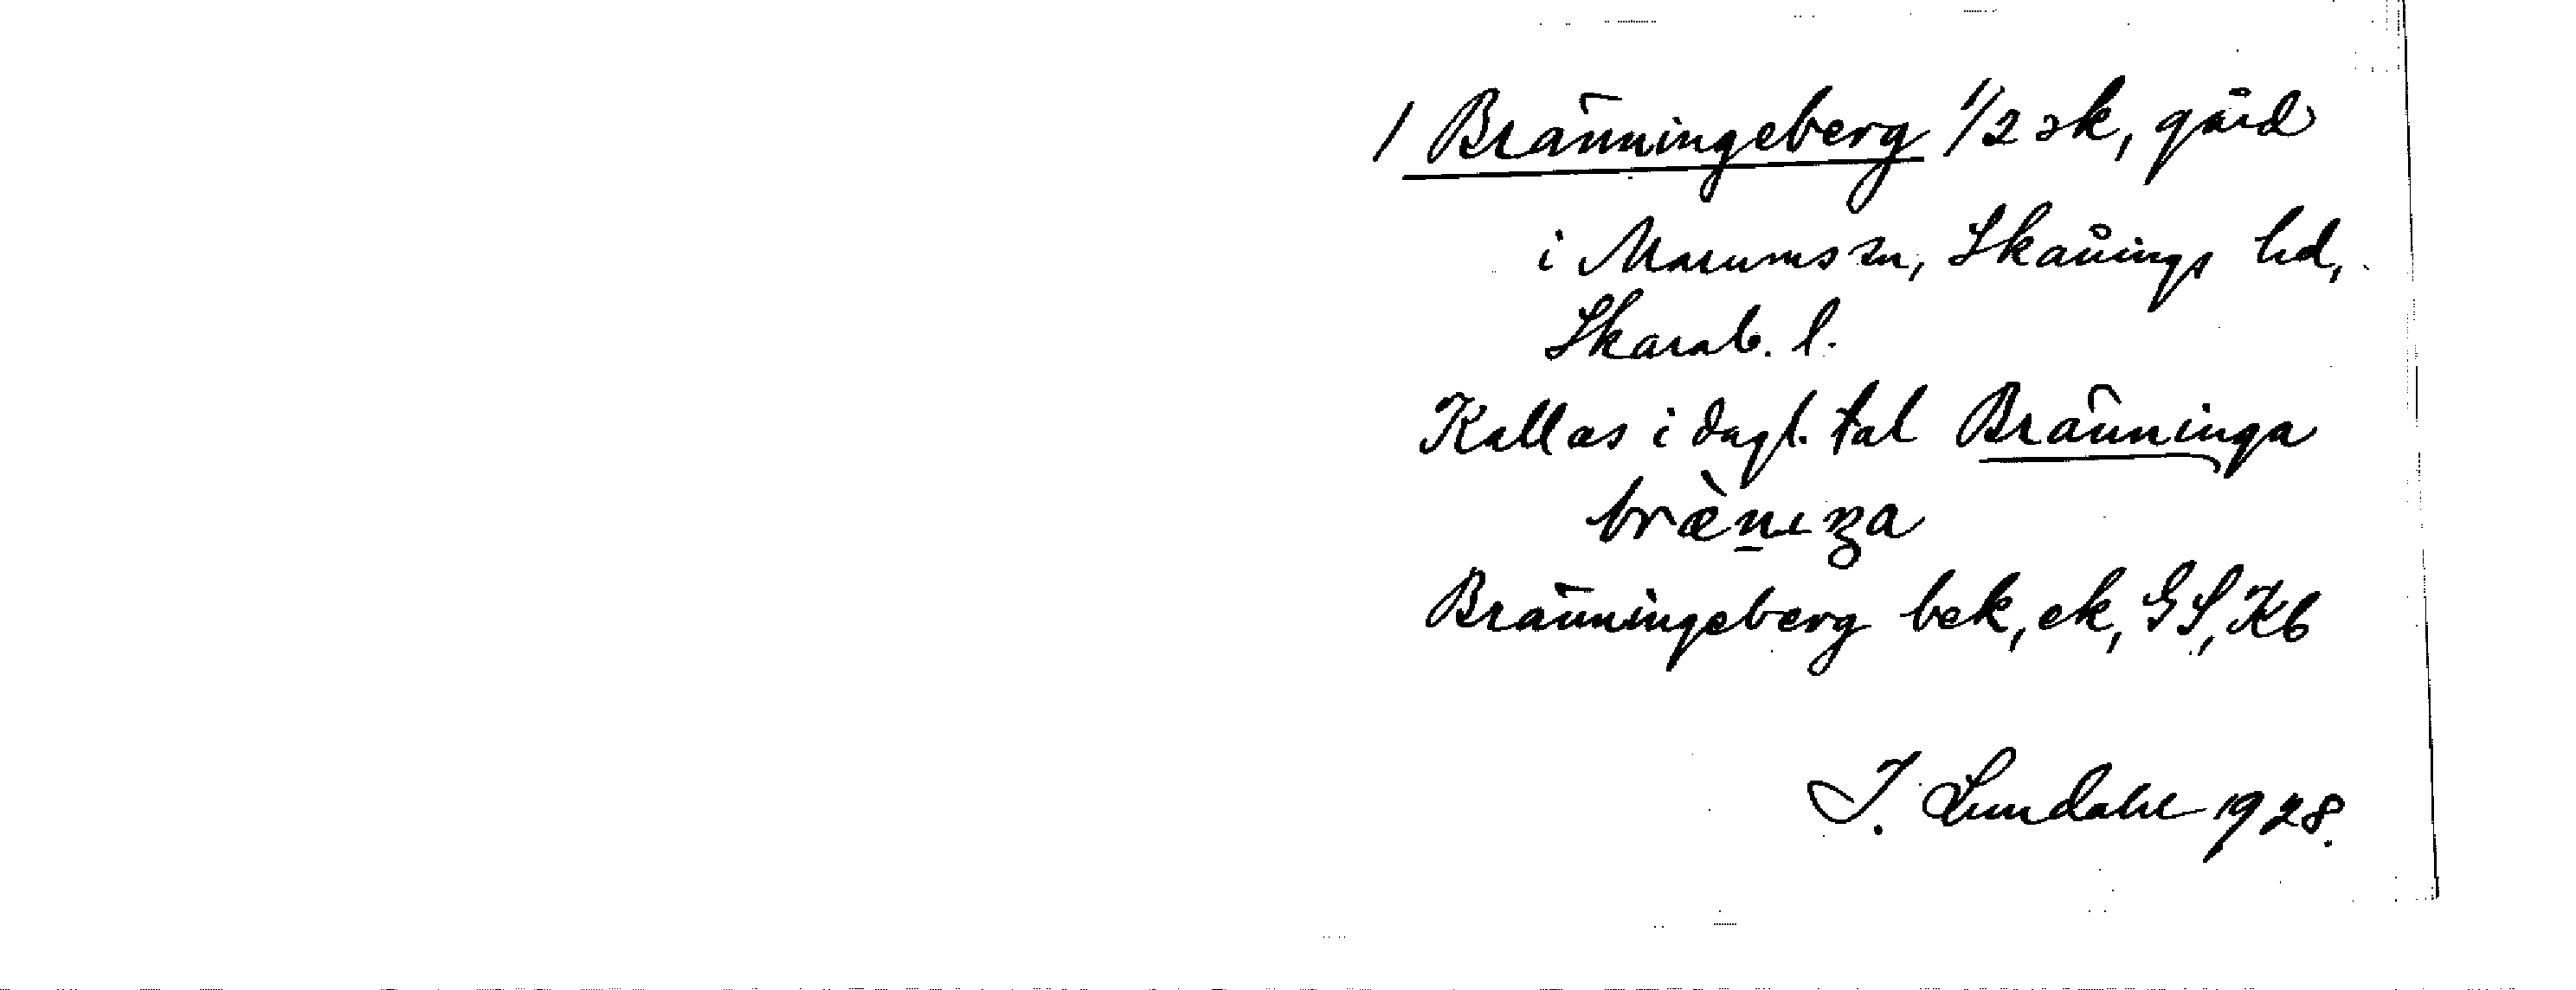 1 Bränningeberg 1/2 sk, gård
i Marums sn, Skånings hd,
Skarab. l.
Kallas i dagl. tal Bränninga
bræ̀nıŋa
Bränningeberg bek, ek, GS, Kb
I. Lundahl 1928.